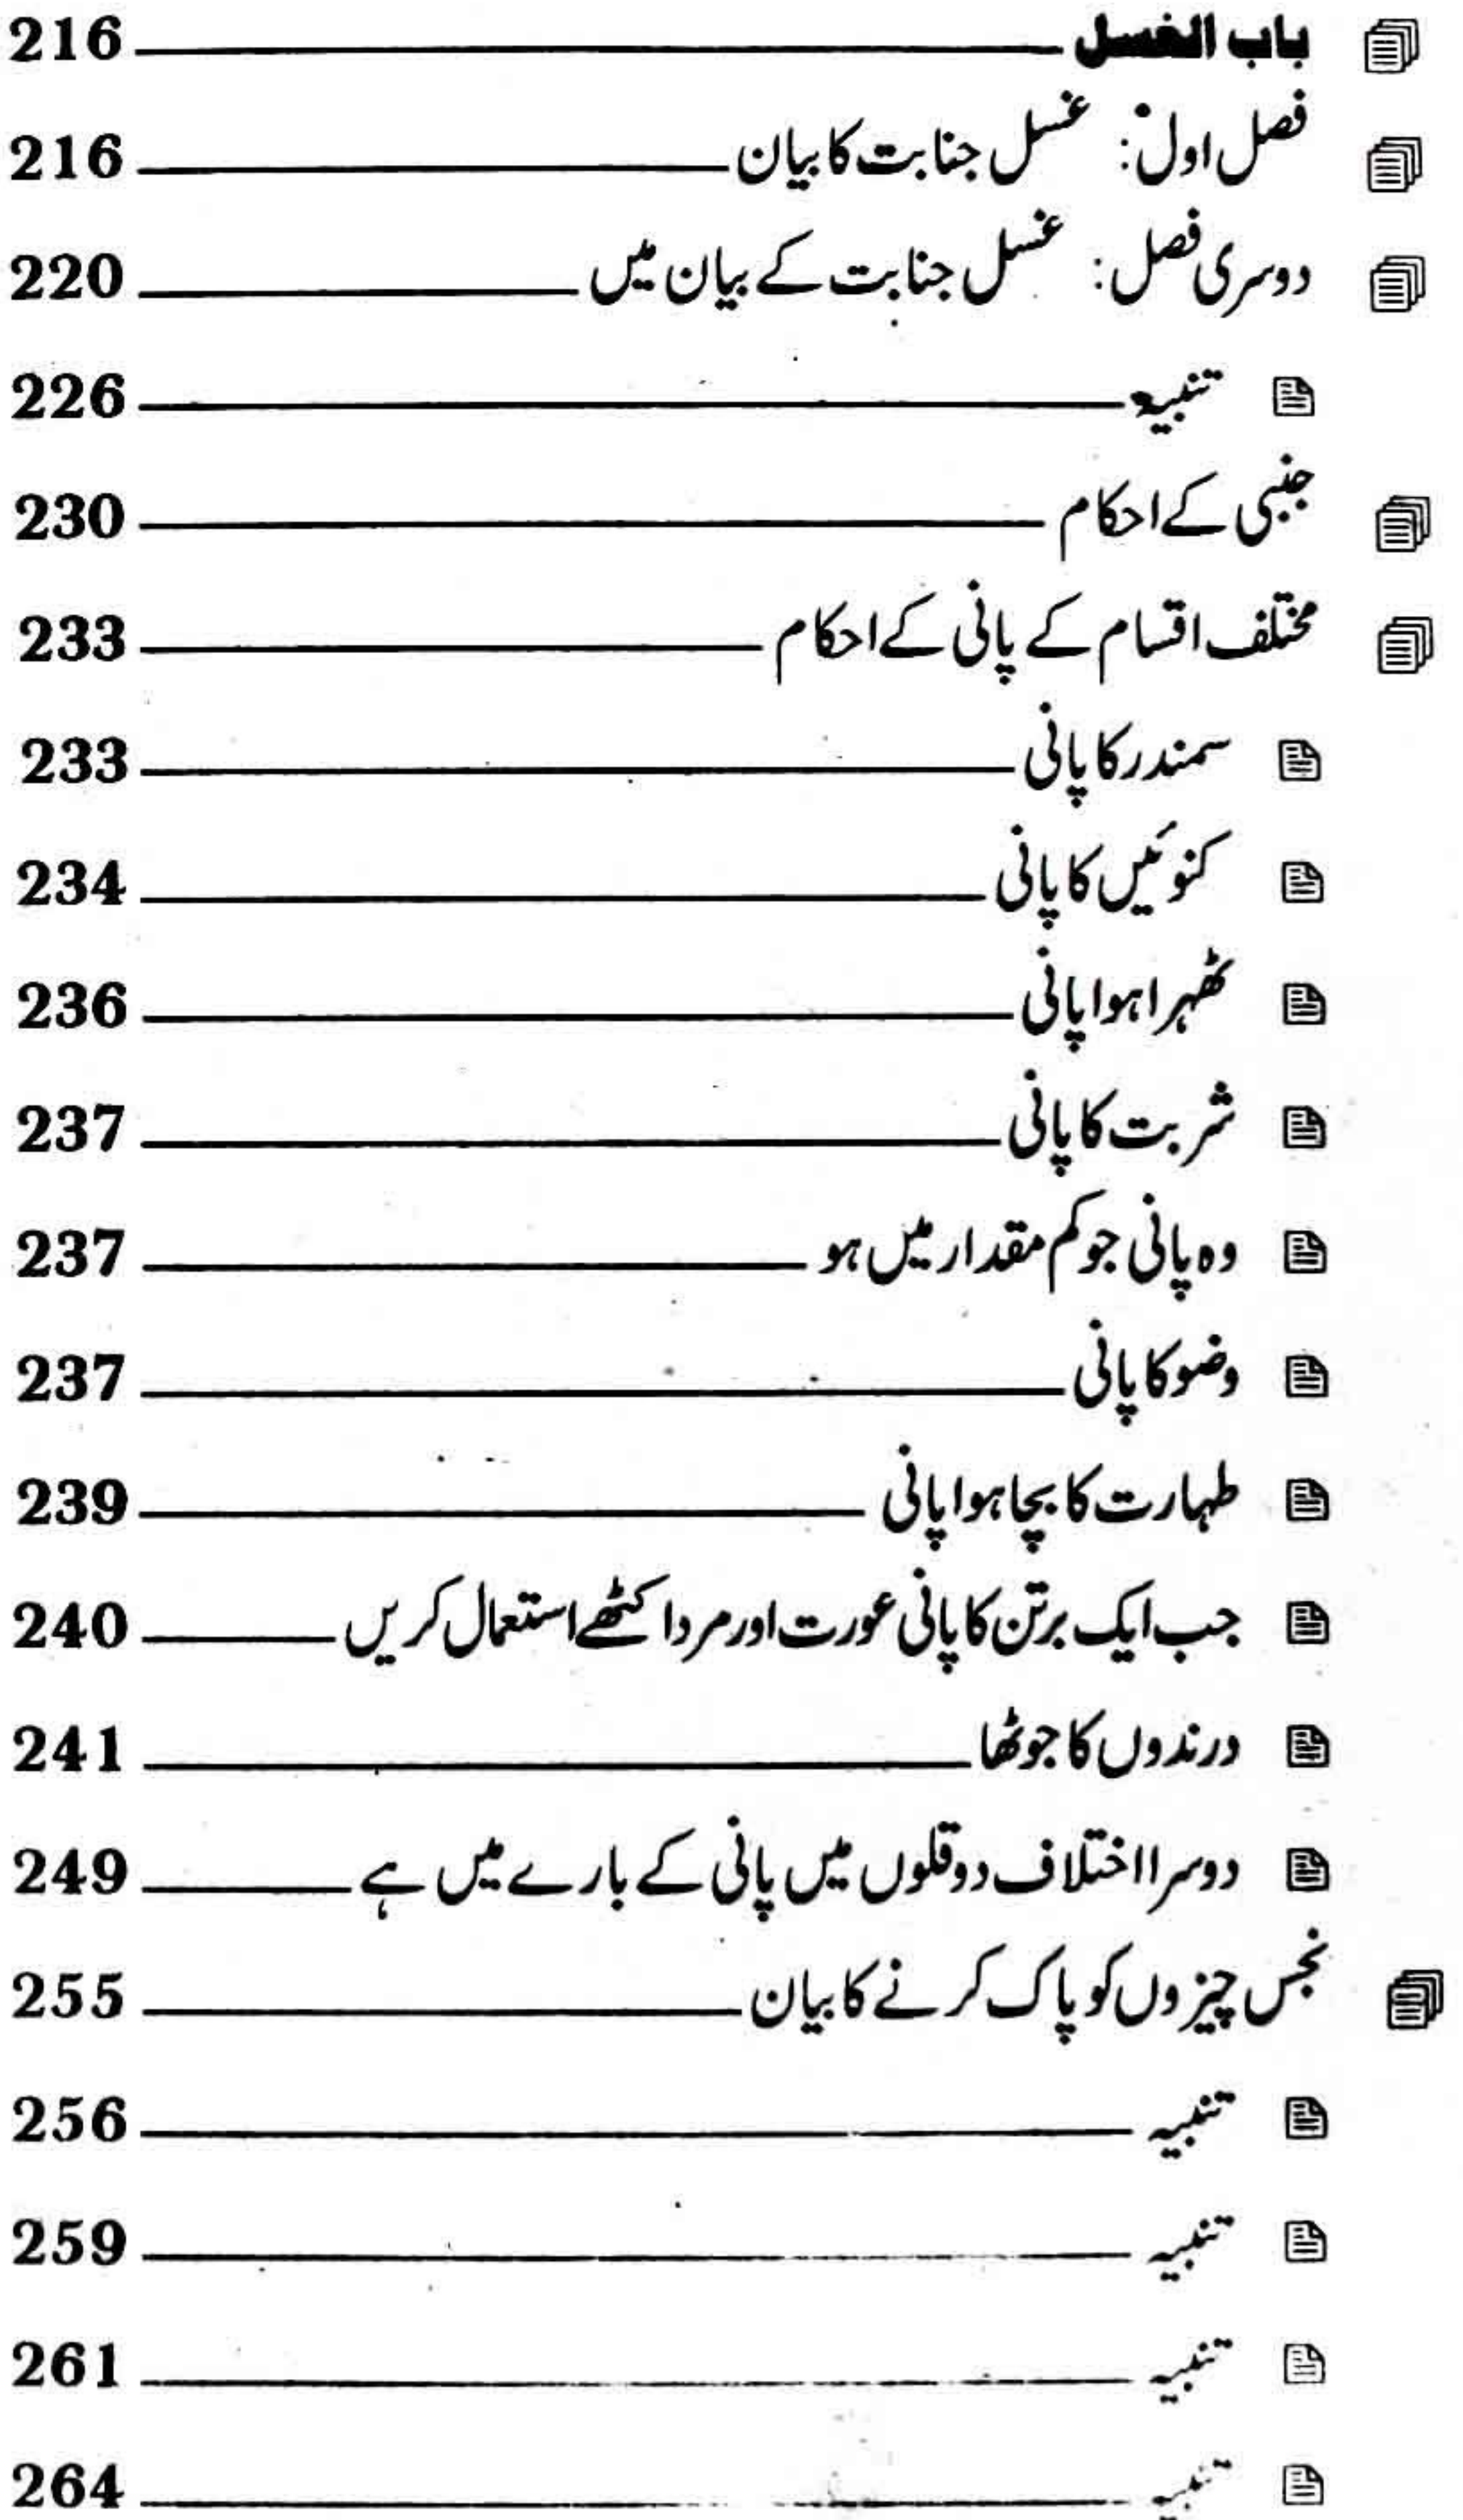 باب الغسل 216
فصل اول: غسل جنابت کا بیان 216
دوسری فصل: غسل جنابت کے بیان میں 220
تنبیہ 226
جنبی کے احکام 230
مختلف اقسام کے پانی کے احکام 233
سمندر کا پانی 233
کنوئیں کا پانی 234
ٹھہرا ہوا پانی 236
شربت کا پانی 237
وہ پانی جو کم مقدار میں ہو 237
وضو کا پانی 237
طہارت کا بچا ہوا پانی 239
جب ایک برتن کا پانی عورت اور مرد اکٹھے استعمال کریں 240
درندوں کا جوٹھا 241
دوسرا اختلاف دو قلوں میں پانی کے بارے میں ہے 249
نجس چیزوں کو پاک کرنے کا بیان 255
تنبیہ 256
تنبیہ 259
تنبیہ 261
تنبیہ 264